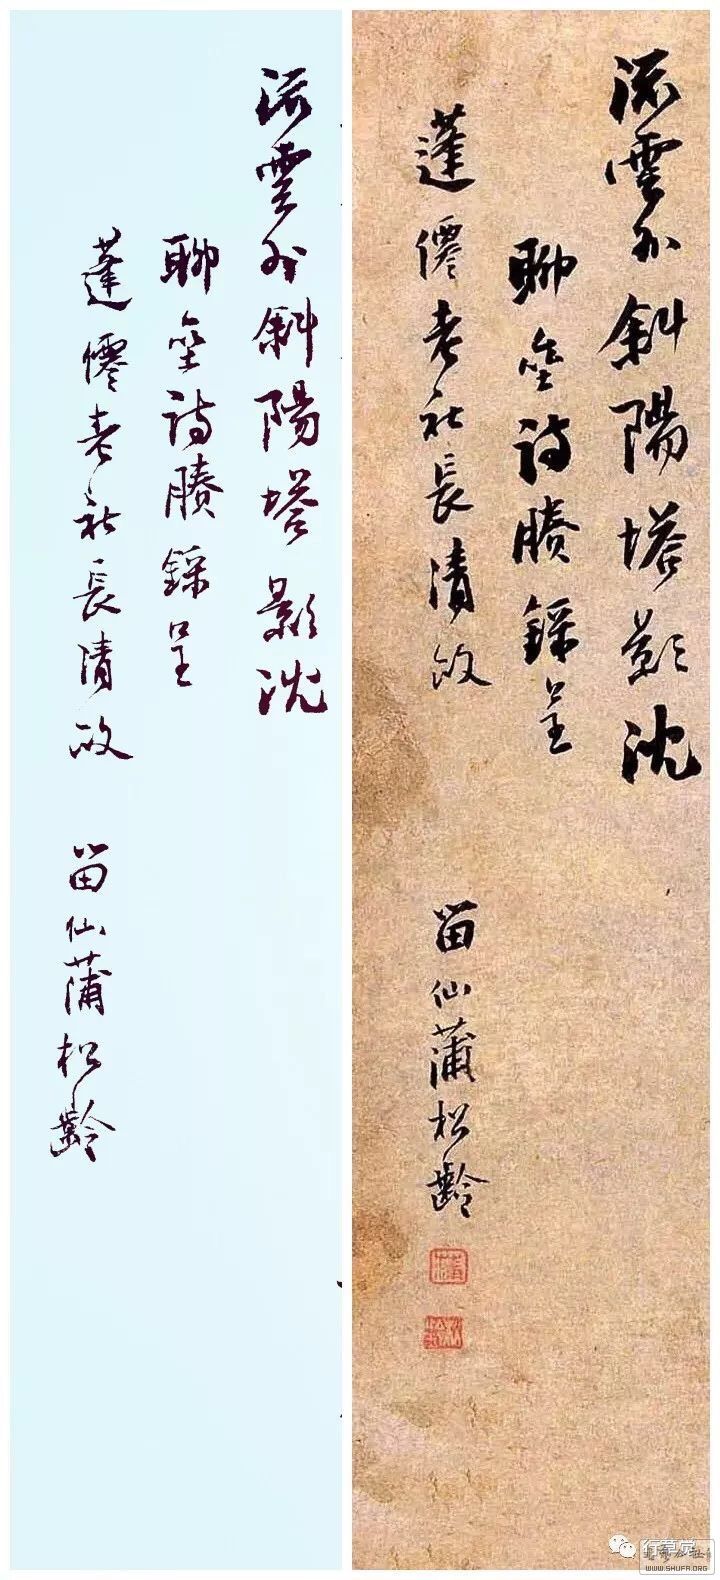 流雲外斜陽塔影沈
聊齋詩賸錄呈
蓬僊老社長清政
留仙蒲松齡
流雲外斜陽塔影沈
聊齋詩賸錄呈
蓬僊老社長清政
留仙蒲松齡
行草觉
WWW.SHUFA.ORG